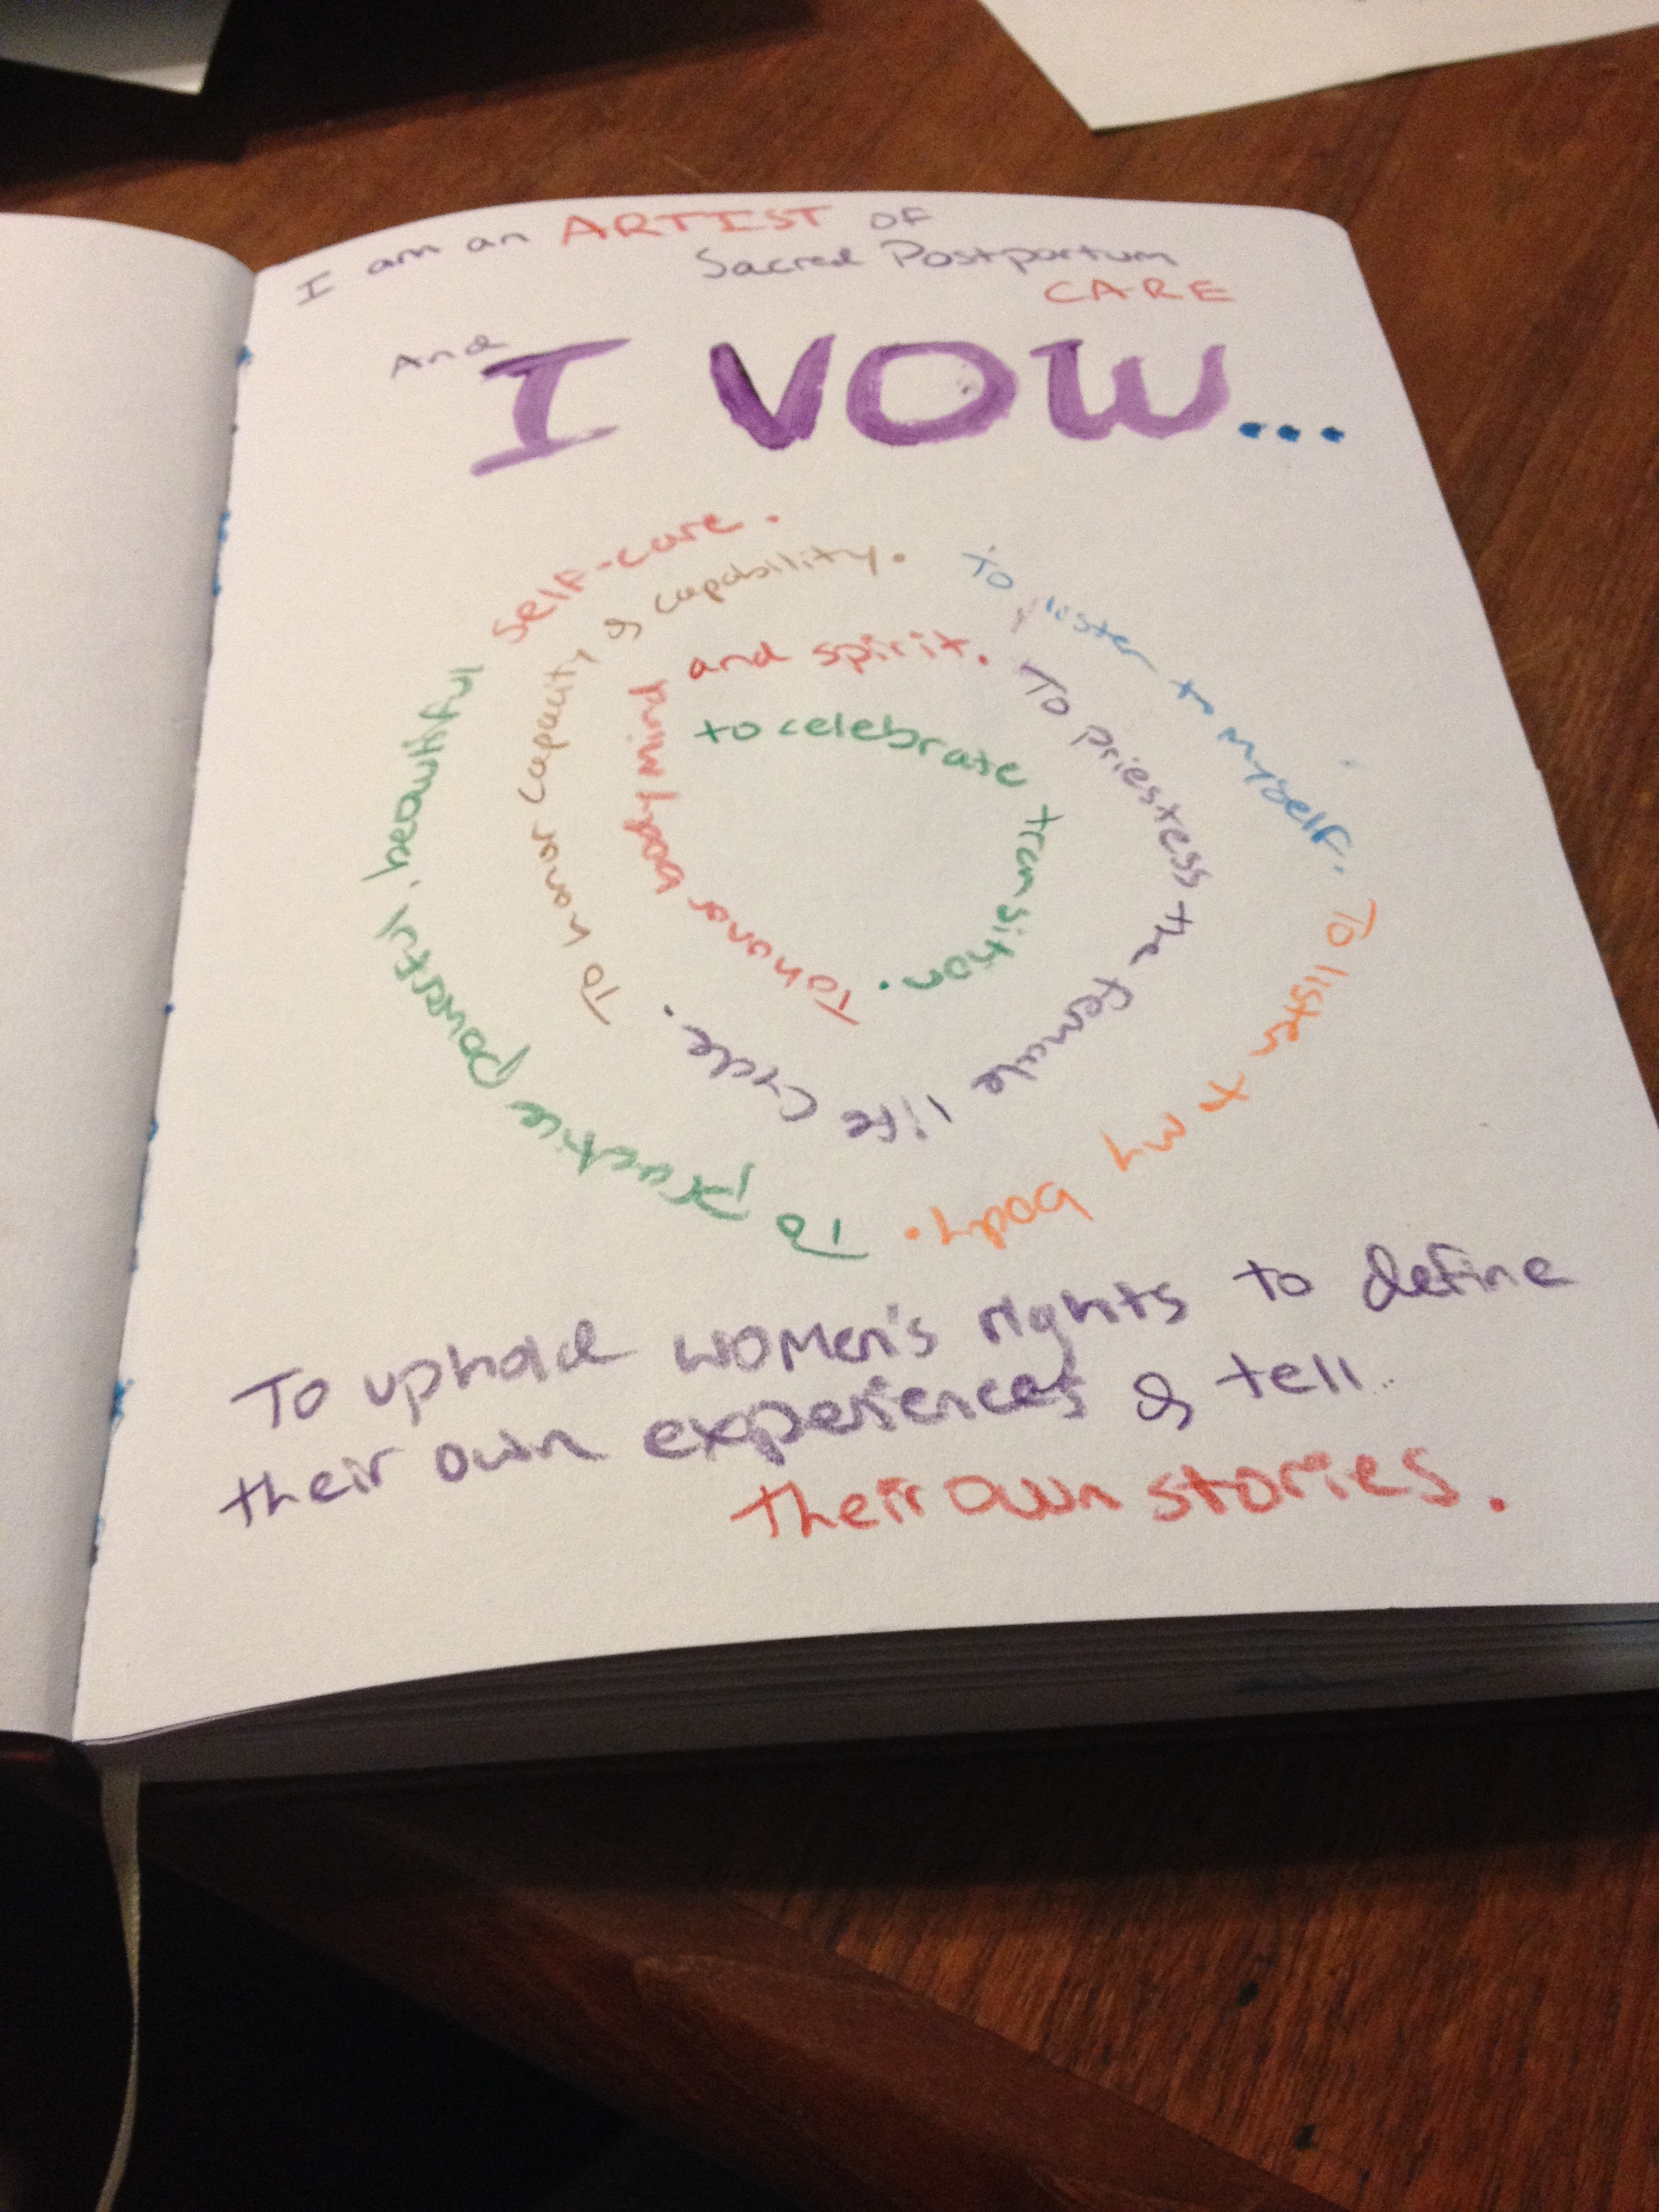 I am an ARTIST OF
Sacred Postpartum
CARE
And I VOW...
to celebrate transition.
To honor body mind and spirit.
To priestess the female life cycle.
To honor capacity & capability.
To listen to myself.
To listen t my body.
To practice powerful, beautiful self-care.
To uphold women's rights to define
their own experiences & tell
their own stories.